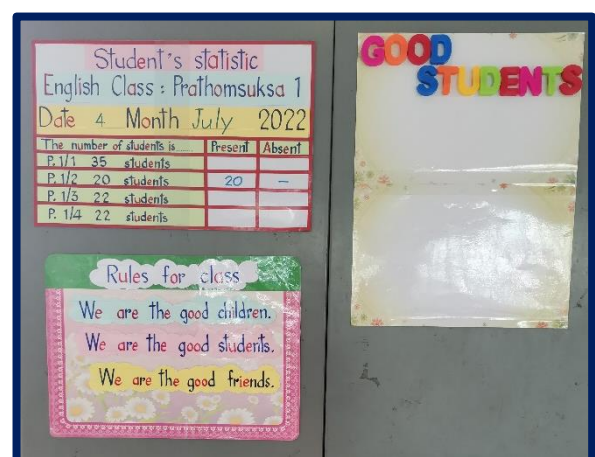 Student's statistic
English Class : Prathomsuksa 1
Date 4 Month July 2022
The number of students is..... Present Absent
P. 1/1 35 students
P. 1/2 20 students 20 –
P. 1/3 22 students
P. 1/4 22 students
Rules for class
We are the good children.
We are the good students.
We are the good friends.
GOOD
STUDENTS